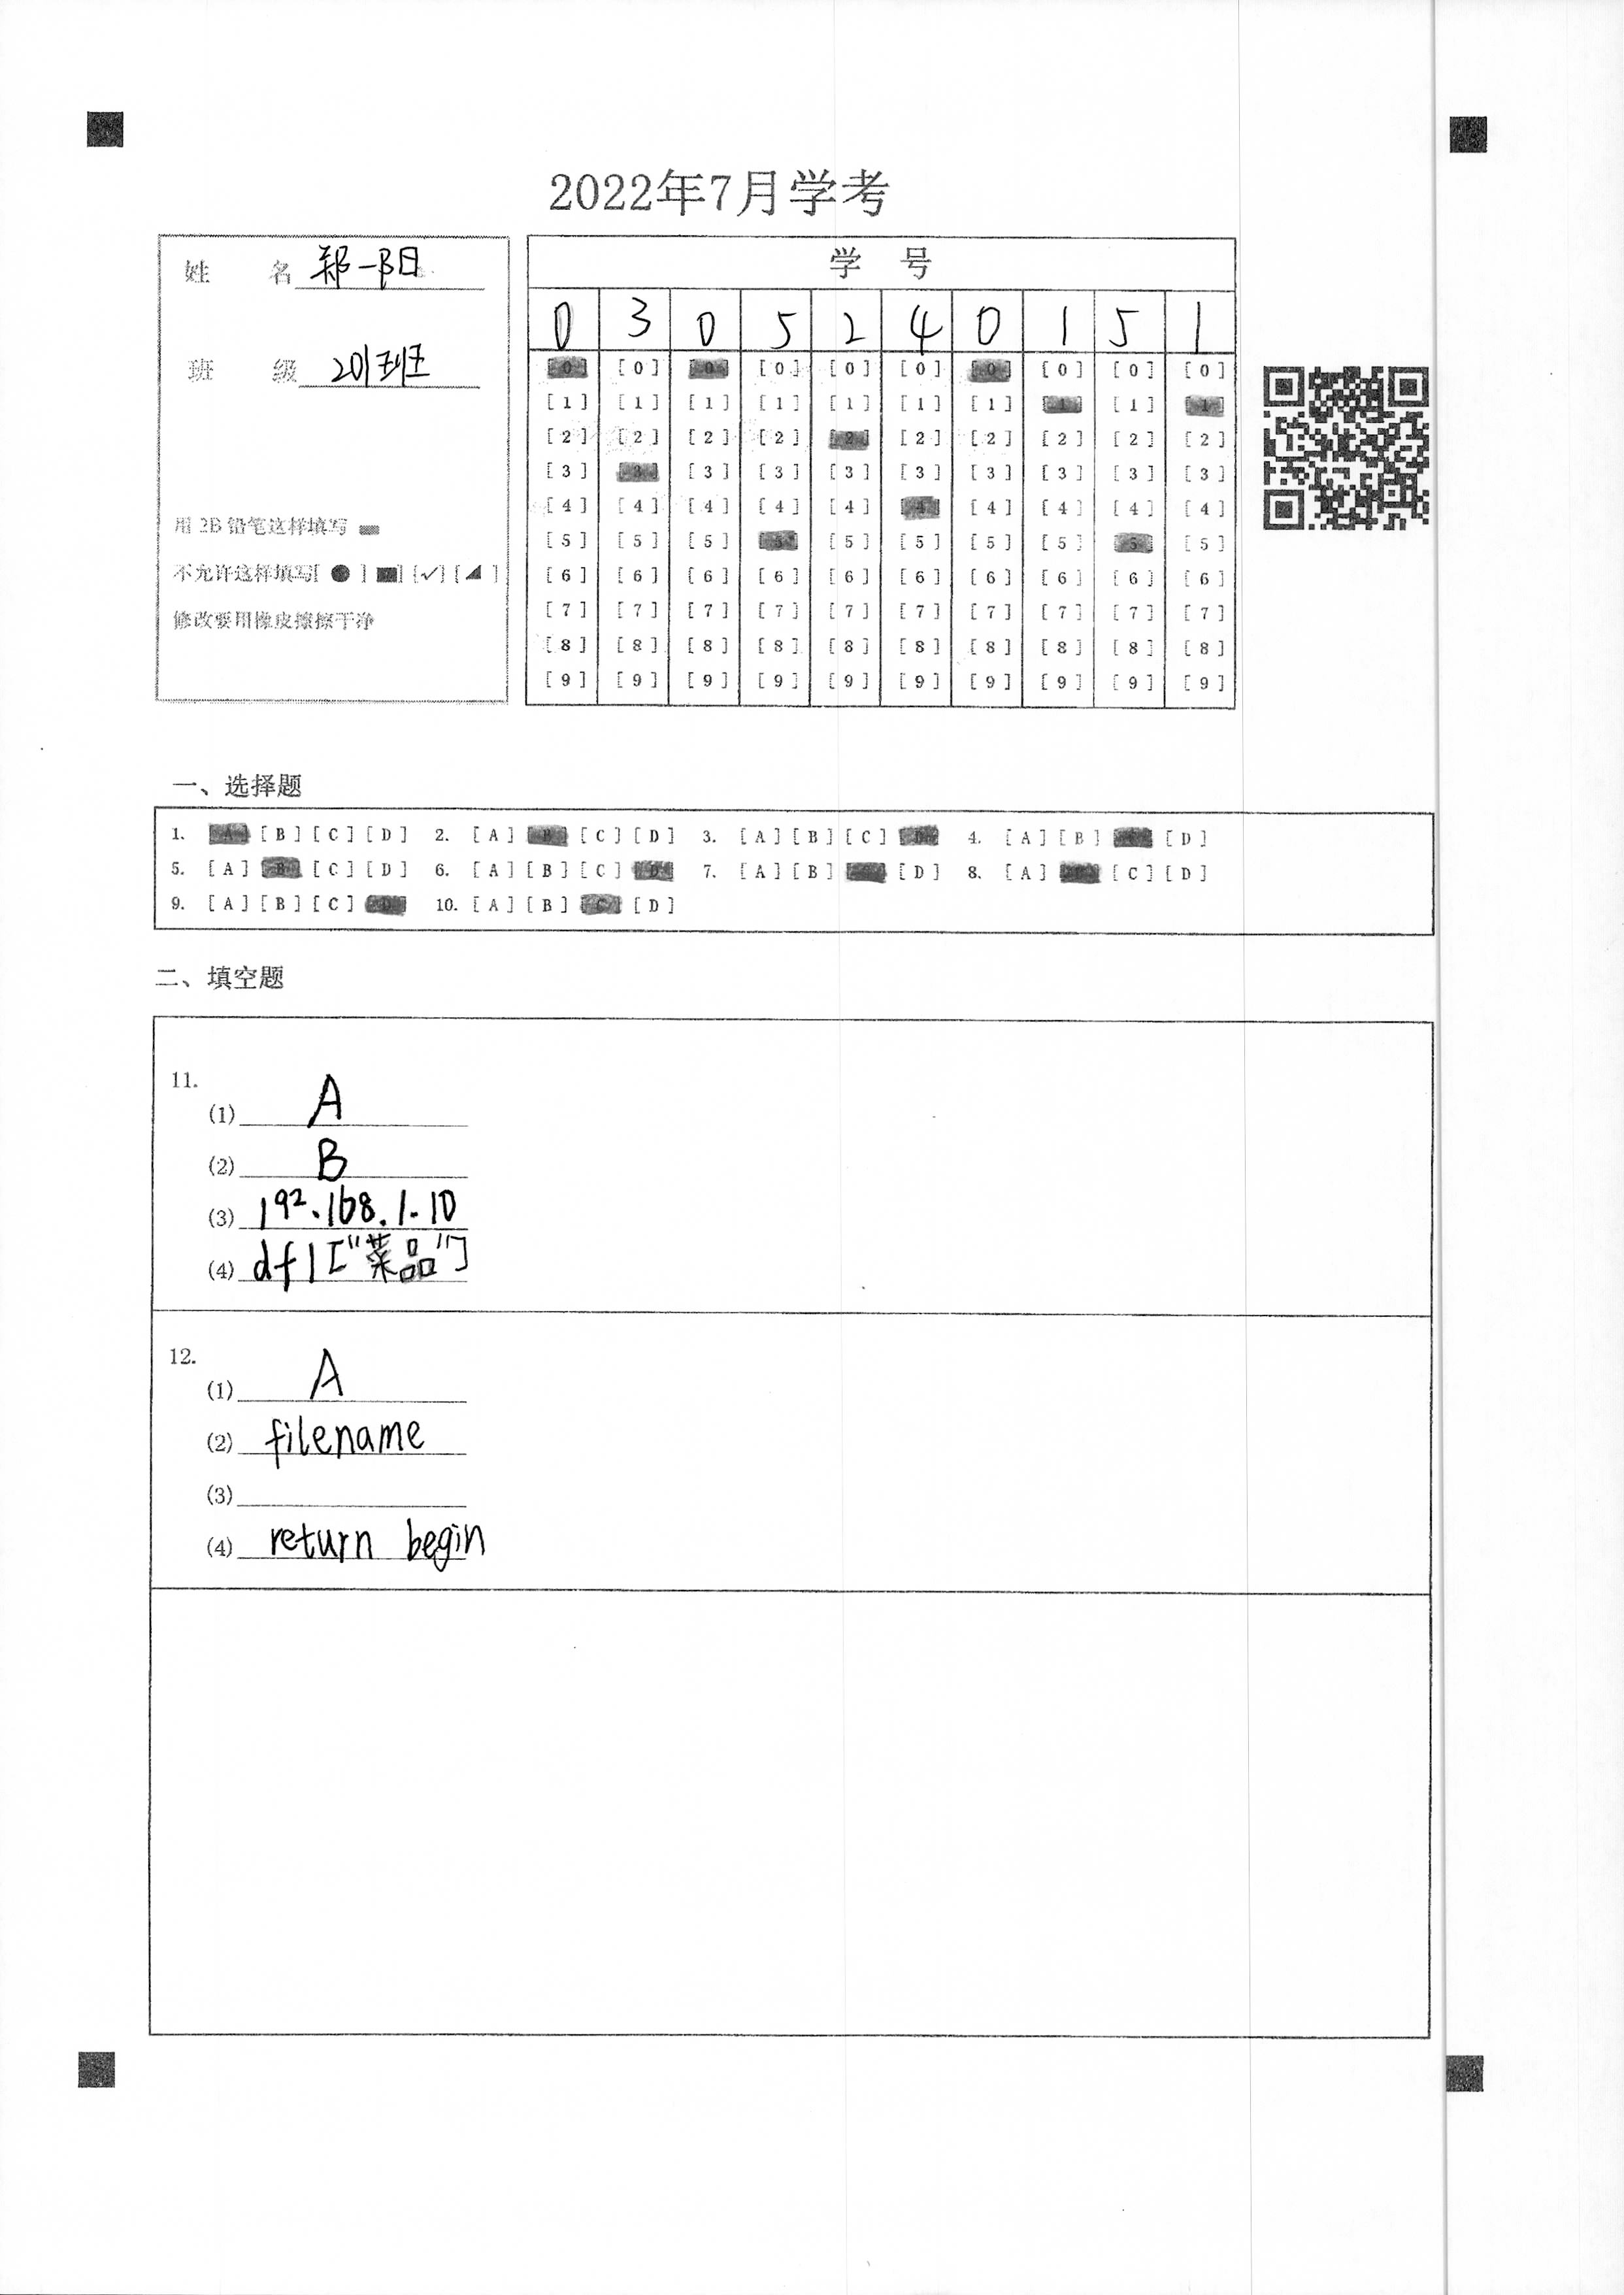 2022年7月学考
姓 名 郑一阳
班 级 201班
用 2B 铅笔这样填写
不允许这样填写[ ● ] [■] [✓] [◢ ]
修改要用橡皮擦擦干净
学 号
0 3 0 5 2 4 0 1 5 1
[0] [0] [0] [0] [0] [0] [0] [0] [0] [0]
[1] [1] [1] [1] [1] [1] [1] [1] [1] [1]
[2] [2] [2] [2] [2] [2] [2] [2] [2] [2]
[3] [3] [3] [3] [3] [3] [3] [3] [3] [3]
[4] [4] [4] [4] [4] [4] [4] [4] [4] [4]
[5] [5] [5] [5] [5] [5] [5] [5] [5] [5]
[6] [6] [6] [6] [6] [6] [6] [6] [6] [6]
[7] [7] [7] [7] [7] [7] [7] [7] [7] [7]
[8] [8] [8] [8] [8] [8] [8] [8] [8] [8]
[9] [9] [9] [9] [9] [9] [9] [9] [9] [9]
一、选择题
1. [A] [B] [C] [D] 2. [A] [B] [C] [D] 3. [A] [B] [C] [D] 4. [A] [B] [C] [D]
5. [A] [B] [C] [D] 6. [A] [B] [C] [D] 7. [A] [B] [C] [D] 8. [A] [B] [C] [D]
9. [A] [B] [C] [D] 10. [A] [B] [C] [D]
二、填空题
11.
(1) A
(2) B
(3) 192.168.1.10
(4) df1["菜品"]
12.
(1) A
(2) filename
(3)
(4) return begin